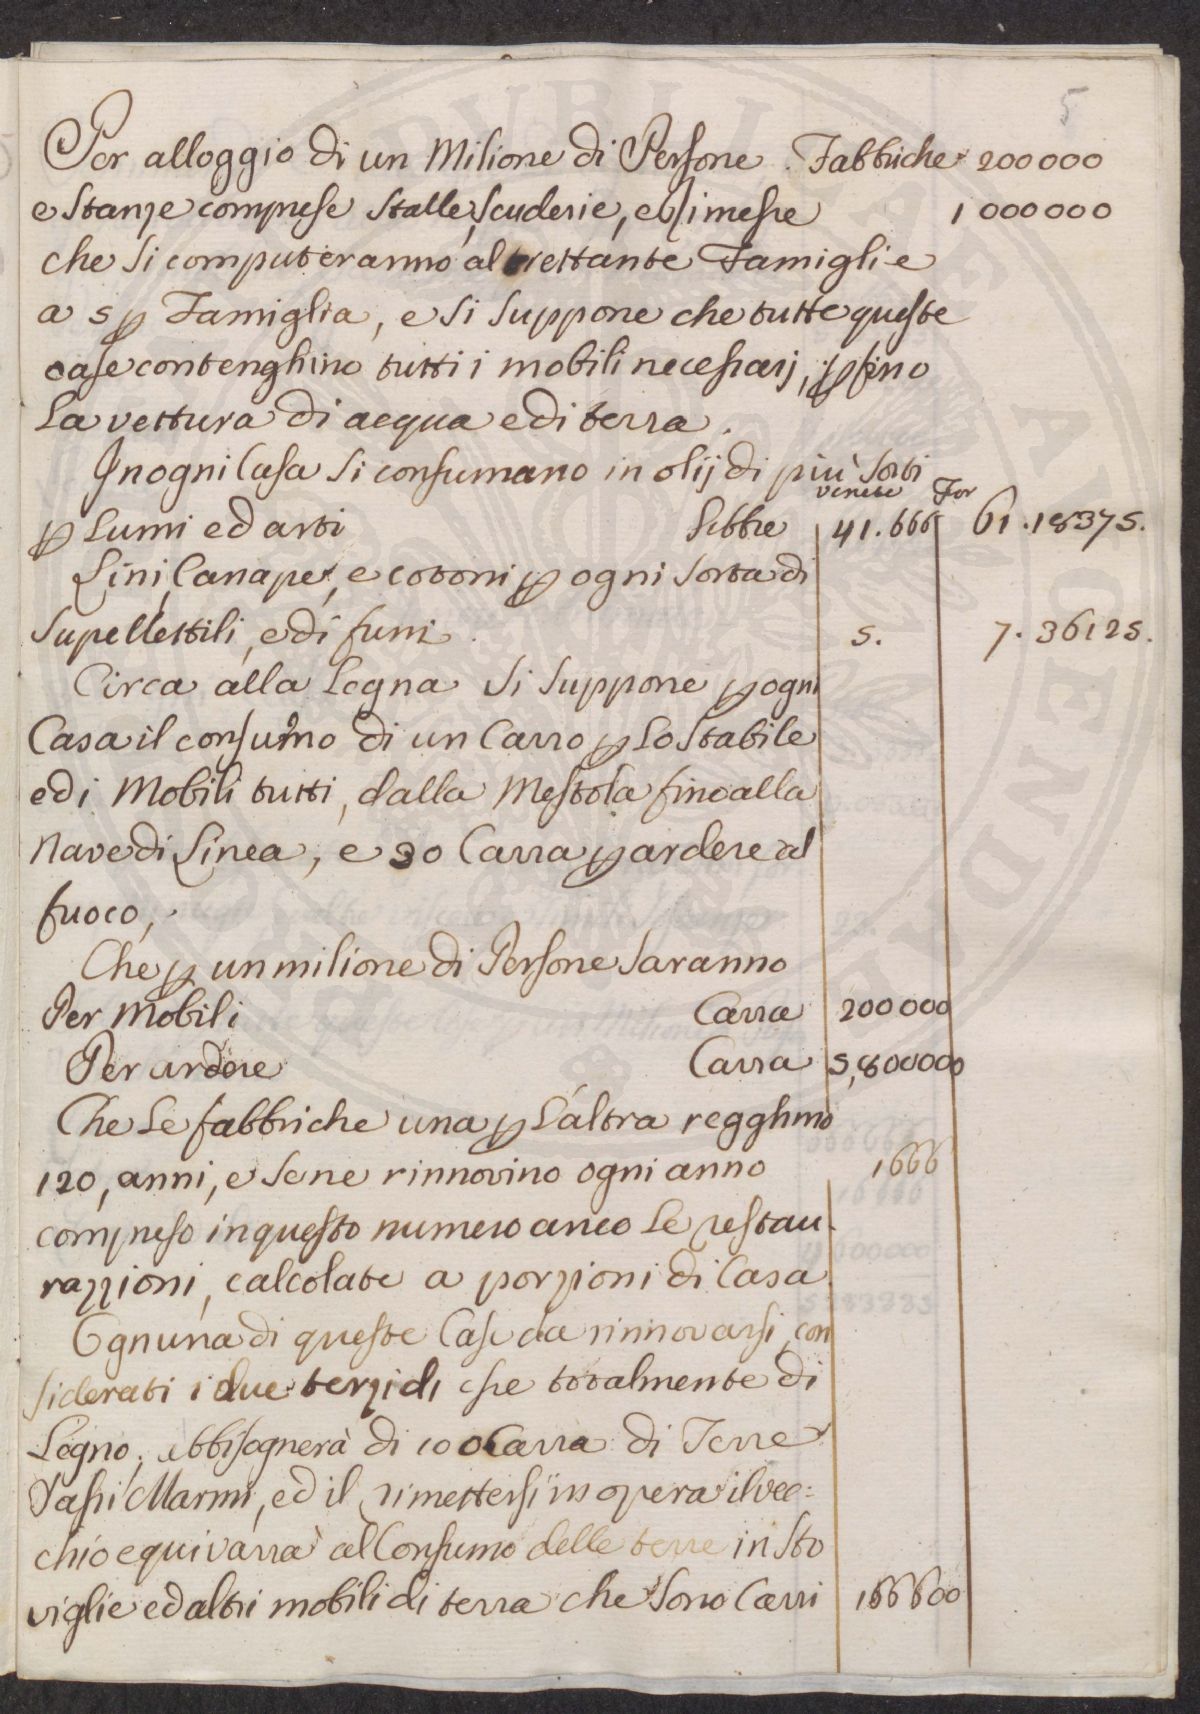 5
Per alloggio di un Milione di Persone. Fabbriche 200000
e Stanze comprese Stalle, Scuderie, e Rimesse 1000000
che si computeranno altrettante Famiglie
a 5 p Famiglia, e si suppone che tutte queste
case contenghino tutti i mobili necessarj, p fino
la vettura di acqua e di terra.
In ogni Casa si consumano in olij di più sorti
venete For
p Lumi ed arti Libbre 41.666 61.18375.
Lini, Canape, e cotoni p ogni sorta di
Supellettili, e di funi. 5. 7.36125.
Circa alla Legna si suppone p ogni
Casa il consumo di un Carro p lo Stabile
e di Mobili tutti, dalla Mestola fino alla
Nave di Linea, e 30 Carra p ardere al
fuoco,
Che p un milione di Persone saranno
Per Mobili Carra 200000
Per ardere Carra 5,800000
Che le fabbriche una p l'altra regghino
120, anni, e se ne rinnovino ogni anno 1666
compreso in questo numero anco le restau-
razzioni, calcolate a porzioni di Casa.
Ognuna di queste Case da rinnovarsi, con
siderati i due terzi di esse totalmente di
Legno, abbisognerà di 100 Carra di Terre
Sassi Marmi, ed il rimettersi in opera il vec=
chio equivarrà al Consumo delle terre in Sto
viglie ed altri mobili di terra che sono Carri 166600